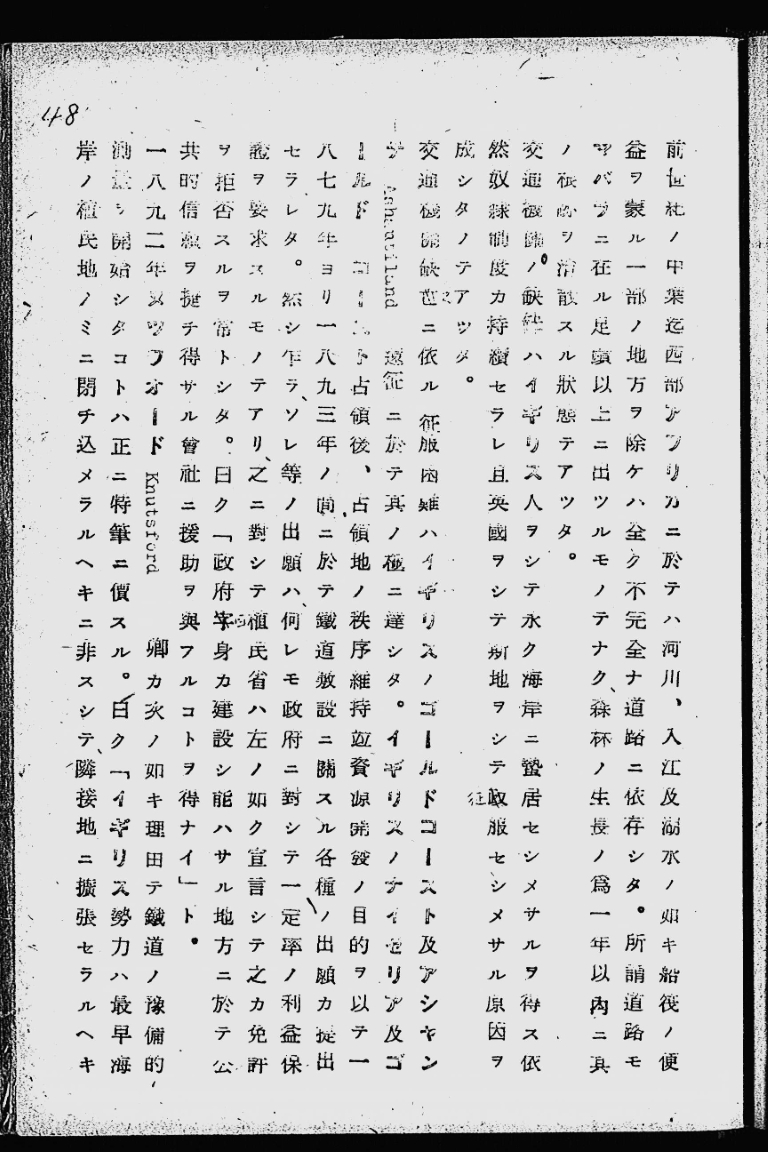 48
前世紀ノ中葉迄西部アフリカニ於テハ河川、入江及湖水ノ如キ船筏ノ便
益ヲ蒙ル一部ノ地方ヲ除ケハ全ク不完全ナ道路ニ依存シタ。所謂道路モ
ニ在ル足頭以上ニ出ツルモノテナク、森林ノ生長ノ爲一年以内ニ其
ノ痕跡ヲ消散スル狀態テアツタ。
交通機關ノ缺如ハイギリス人ヲシテ永ク海岸ニ蟄居セシメサルヲ得ス依
然奴隷制度カ持續セラレ且英國ヲシテ斯地ヲシテ征服セシメサル原因ヲ
成シタノテアツタ。
交通機關缺乏ニ依ル征服困難ハイギリスノゴールドコースト及アシヤン
テ Ashantiland 遠征ニ於テ其ノ極ニ達シタ。イギリスノナイゼリア及ゴ
ールドコースト占領後、占領地ノ秩序維持竝資源開發ノ目的ヲ以テ一
八七九年ヨリ一八九三年ノ間ニ於テ鐵道敷設ニ關スル各種ノ出願カ提出
セラレタ。然シ乍ラソレ等ノ出願ハ何レモ政府ニ對シテ一定率ノ利益保
證ヲ要求スルモノテアリ之ニ對シテ植民省ハ左ノ如ク宣言シテ之カ免許
ヲ拒否スルヲ常トシタ。曰ク「政府自身カ建設シ能ハサル地方ニ於テ公
共的信賴ヲ捷チ得サル會社ニ援助ヲ與フルコトヲ得ナイ」ト。
一八九二年ヌツフオード Knutsford 卿カ次ノ如キ理由テ鐵道ノ豫備的
測量ヲ開始シタコトハ正ニ特筆ニ價スル。曰ク「イギリス勢力ハ最早海
岸ノ植民地ノミニ閉チ込メラルヘキニ非スシテ隣接地ニ擴張セラルヘキ